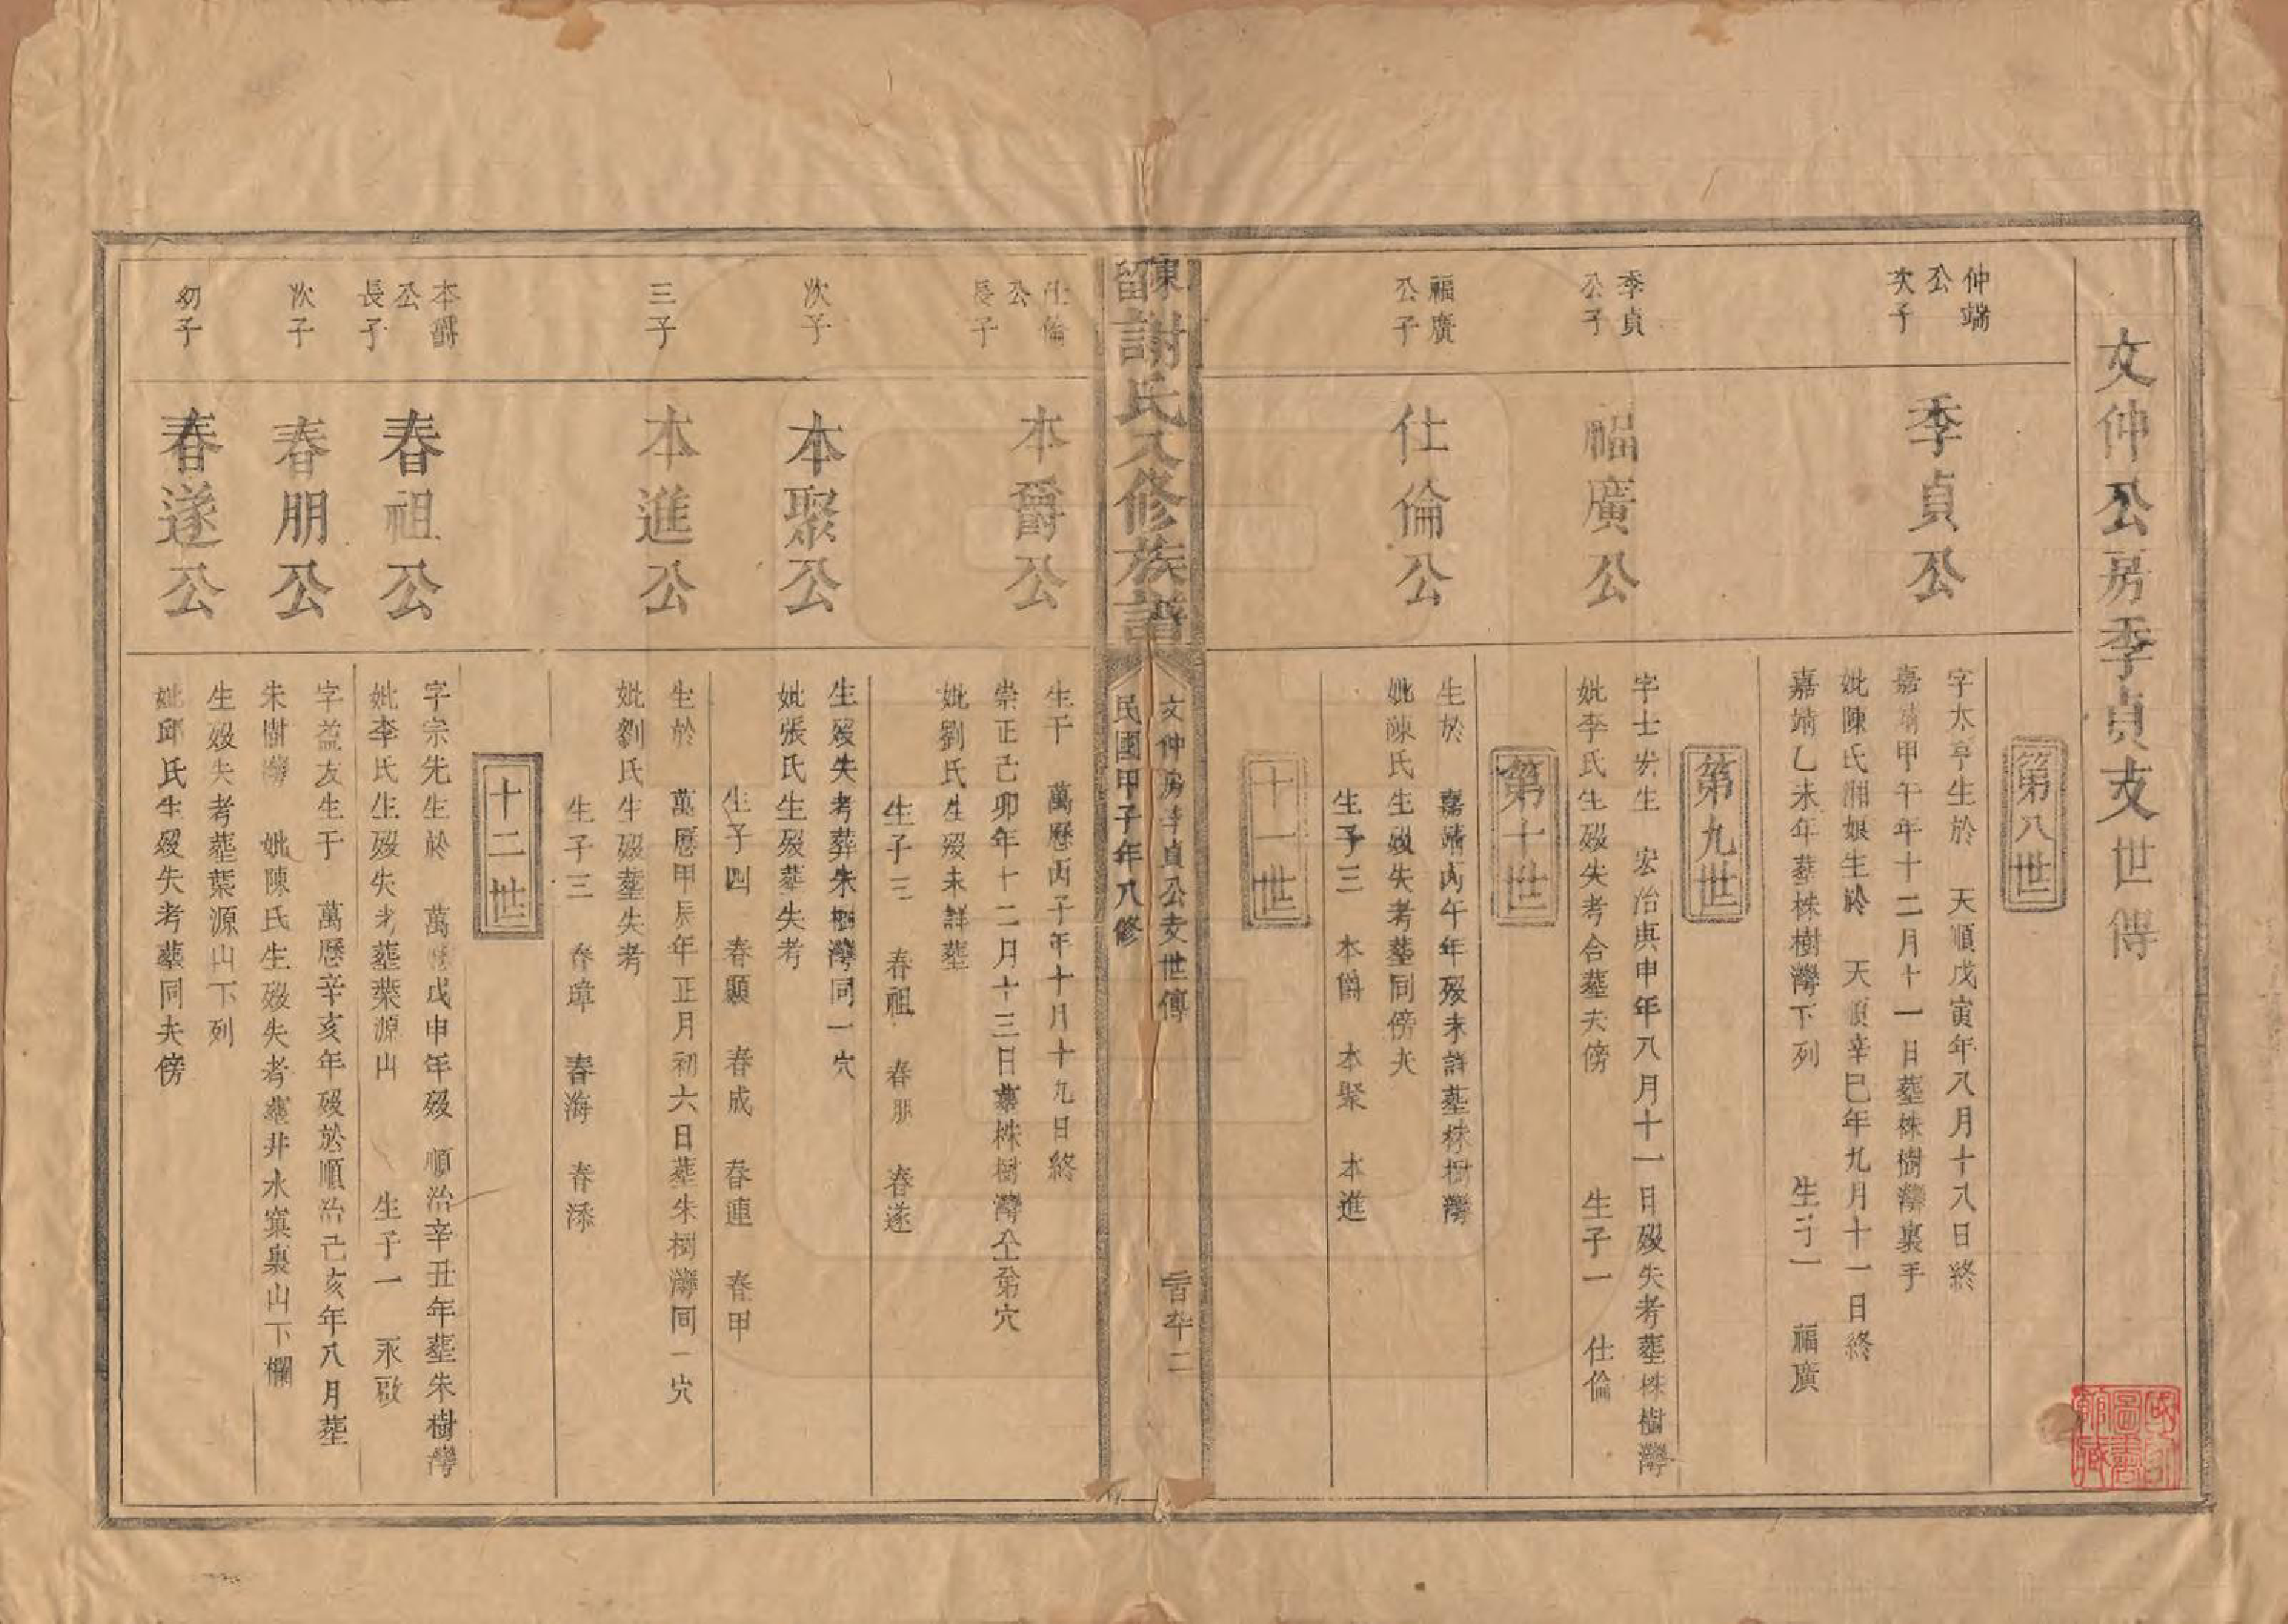 文仲公房季貞支世傳
第八世
仲端
公
次子
季貞公
字太亨生於　天順戊寅年八月十八日終
嘉靖甲午年十二月十一日塟株樹灣裏手
妣陳氏湘娘生於　天順辛巳年九月十一日終
嘉靖乙未年塟株樹灣下列　生子一　福廣
第九世
季貞
公子
福廣公
字士　生　宏治庚申年八月十一日殁失考塟株樹灣
妣李氏生殁失考合塟夫傍　生子一　仕倫
第十世
福廣
公子
仕倫公
生於　嘉靖丙午年殁未詳塟株樹灣
妣陳氏生殁失考塟同傍夫
生子三　本爵　本聚　本進
十一世
陳留謝氏八修族譜
文仲房季貞公支世傳
民國甲子年八修
仕倫
公
長子
本爵公
生于　萬歷丙子年十月十九日終
崇正己卯年十二月十三日塟株樹灣仝第穴
妣劉氏生殁未詳塟
生子三　春祖　春朋　春遂
次子
本聚公
生殁失考葬朱樹灣同一穴
妣張氏生殁塟失考
生子四　春顯　春成　春連　春甲
三子
本進公
生於　萬歷甲辰年正月初六日塟朱樹灣同一穴
妣劉氏生殁塟失考
生子三　春璋　春海　春添
十二世
本爵
公
長子
春祖公
字宗先生於　萬歷戊申年殁　順治辛丑年塟朱樹灣
妣李氏生殁失考塟葉源山　生子一　永啟
次子
春朋公
字益友生于　萬歷辛亥年殁於順治己亥年八月塟
朱樹灣　妣陳氏生殁失考塟井水窠裏山下欄
幼子
春遂公
生殁失考塟葉源山下列
妣邱氏生殁失考塟同夫傍